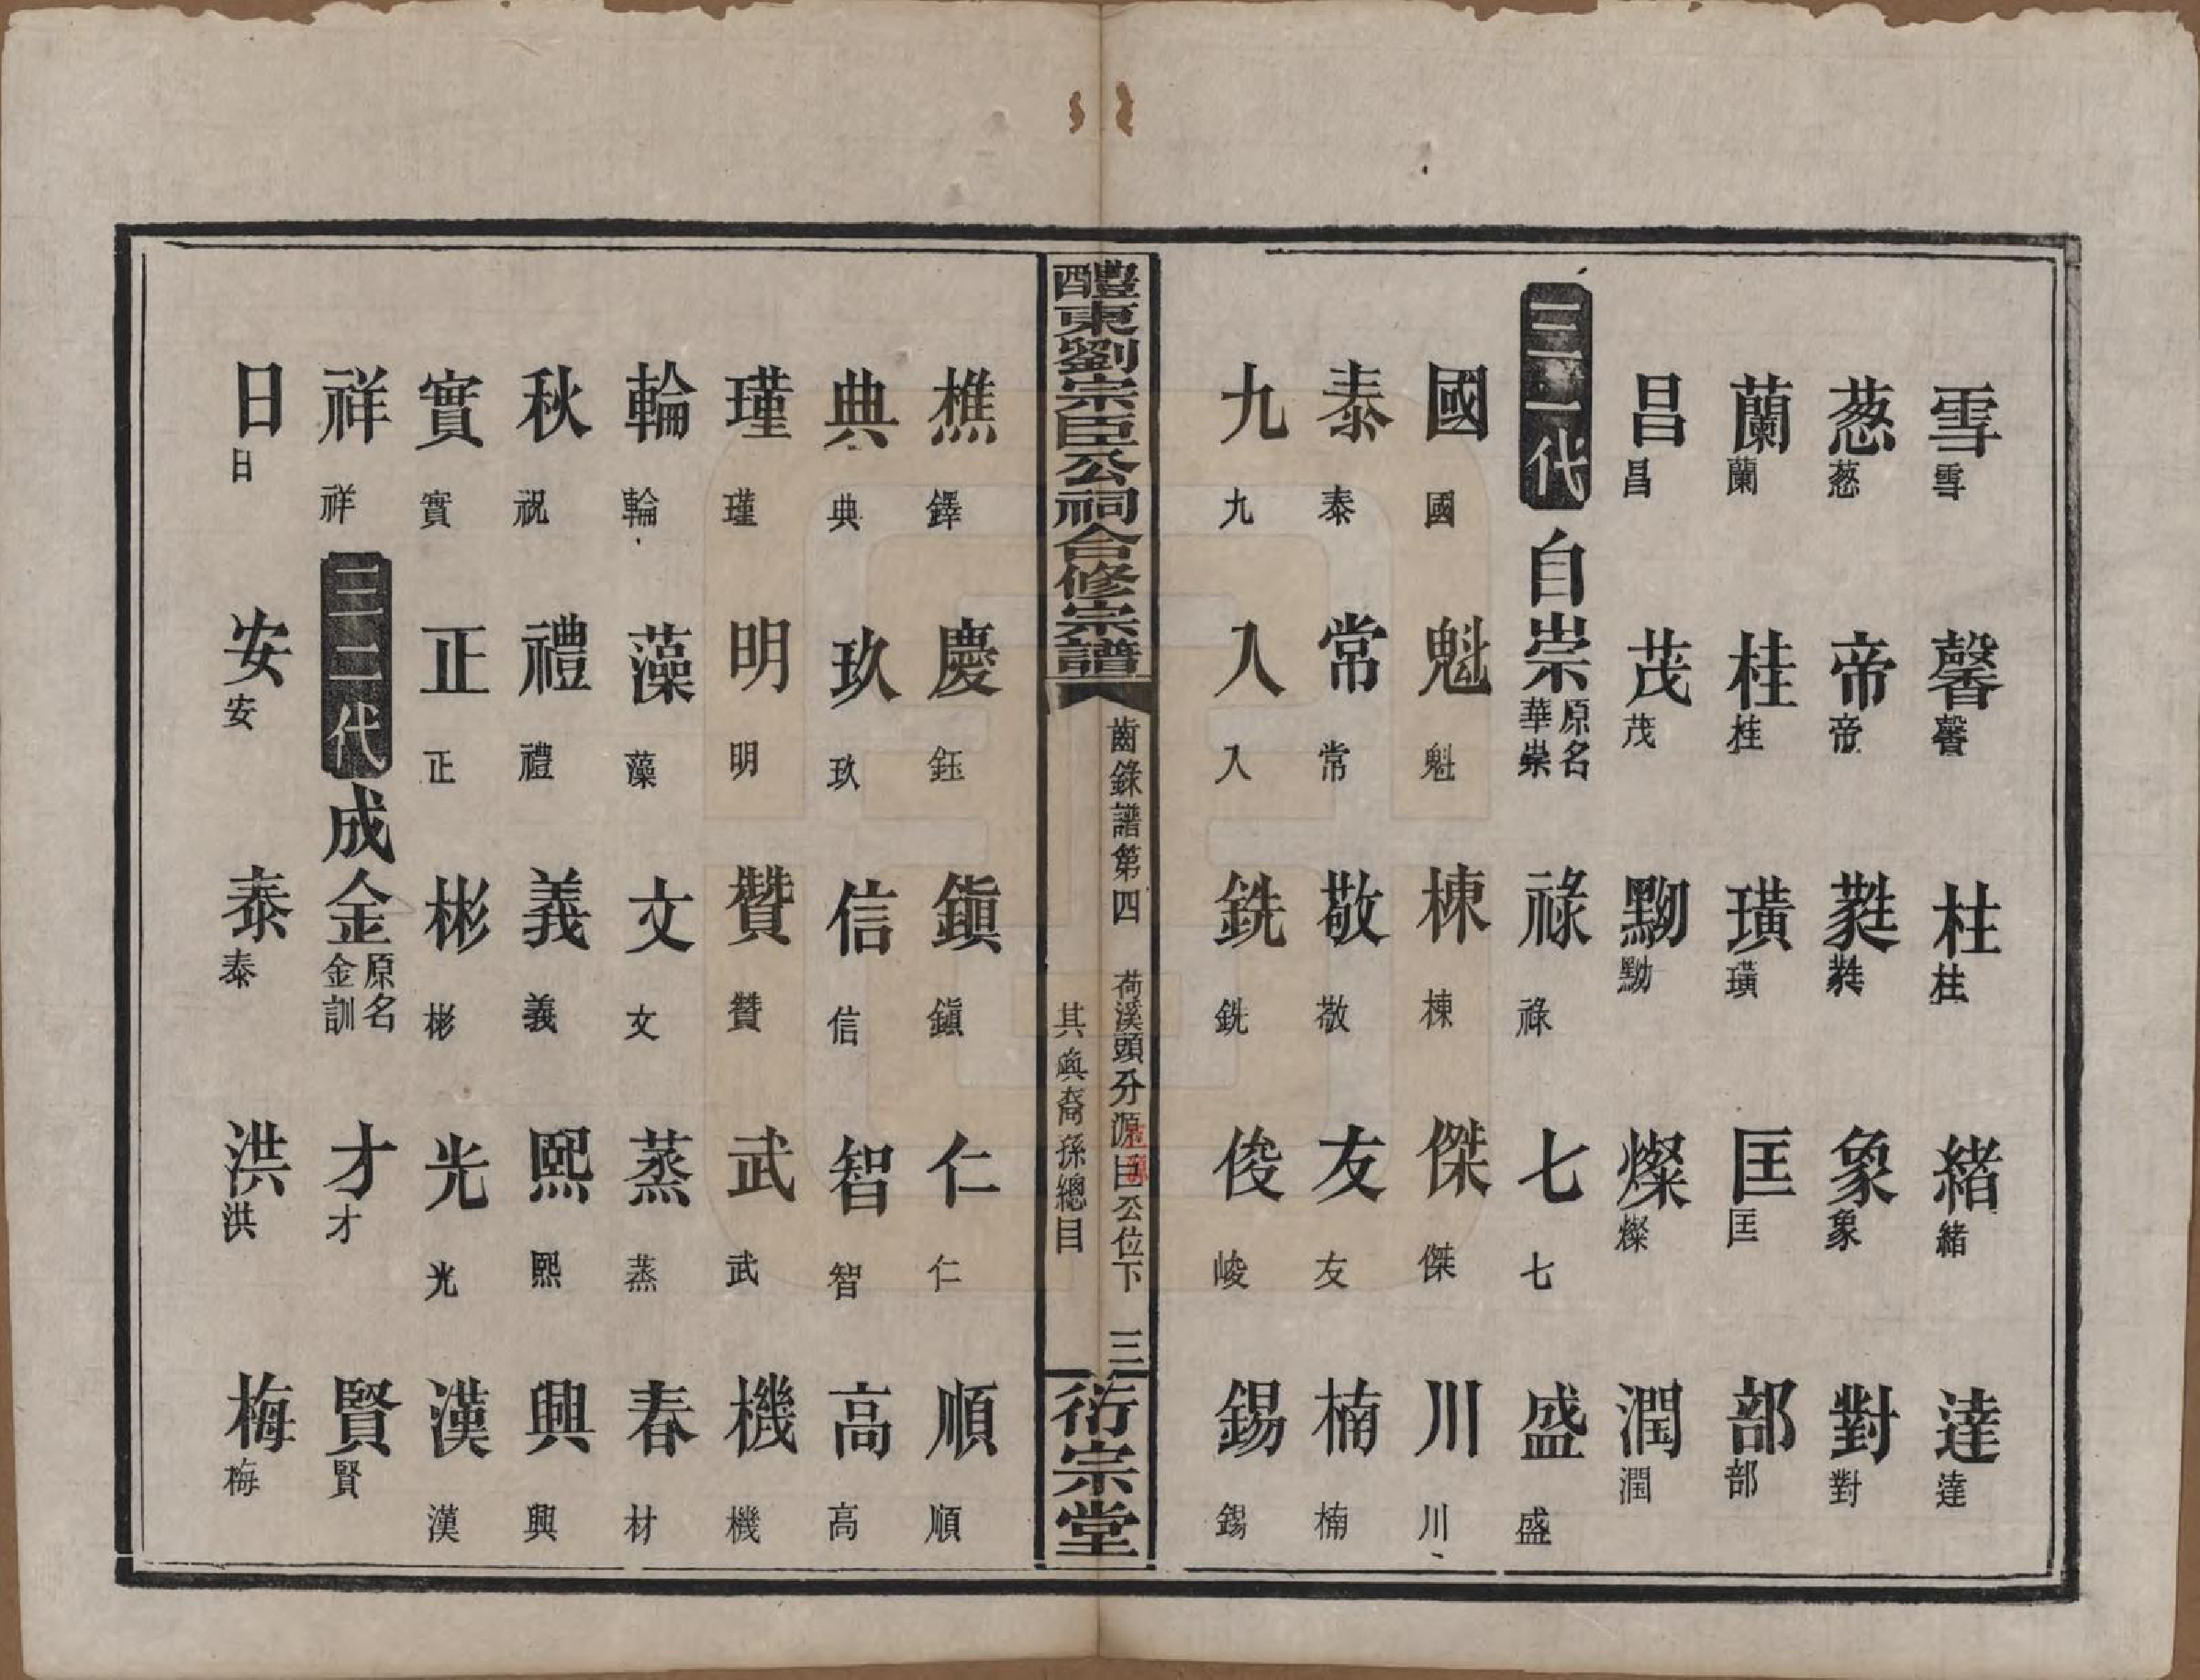 雪雪 馨馨 柱柱 緒緒 達達
葱葱 帝帝 蕤蕤 象象 對對
蘭蘭 桂桂 璜璜 匡匡 部部
昌昌 茂茂 黝黝 燦燦 潤潤
三一代 自崇原名華崇 祿祿 七七 盛盛
國國 魁魁 棟棟 傑傑 川川
泰泰 常常 敬敬 友友 楠楠
九九 入入 銑銑 俊峻 錫錫
醴東劉宗臣公祠合修宗譜
齒錄譜第四 荷溪頭分源自公位下 三
其與裔孫總目
衍宗堂
樵鐸 慶鈺 鎭鎭 仁仁 順順
典典 玖玖 信信 智智 高高
瑾瑾 明明 贊贊 武武 機機
輪輪 藻藻 文文 蒸蒸 春材
秋祝 禮禮 義義 熙熙 興興
實實 正正 彬彬 光光 漢漢
祥祥 三二代 成金原名金訓 才才 賢賢
日日 安安 泰泰 洪洪 梅梅